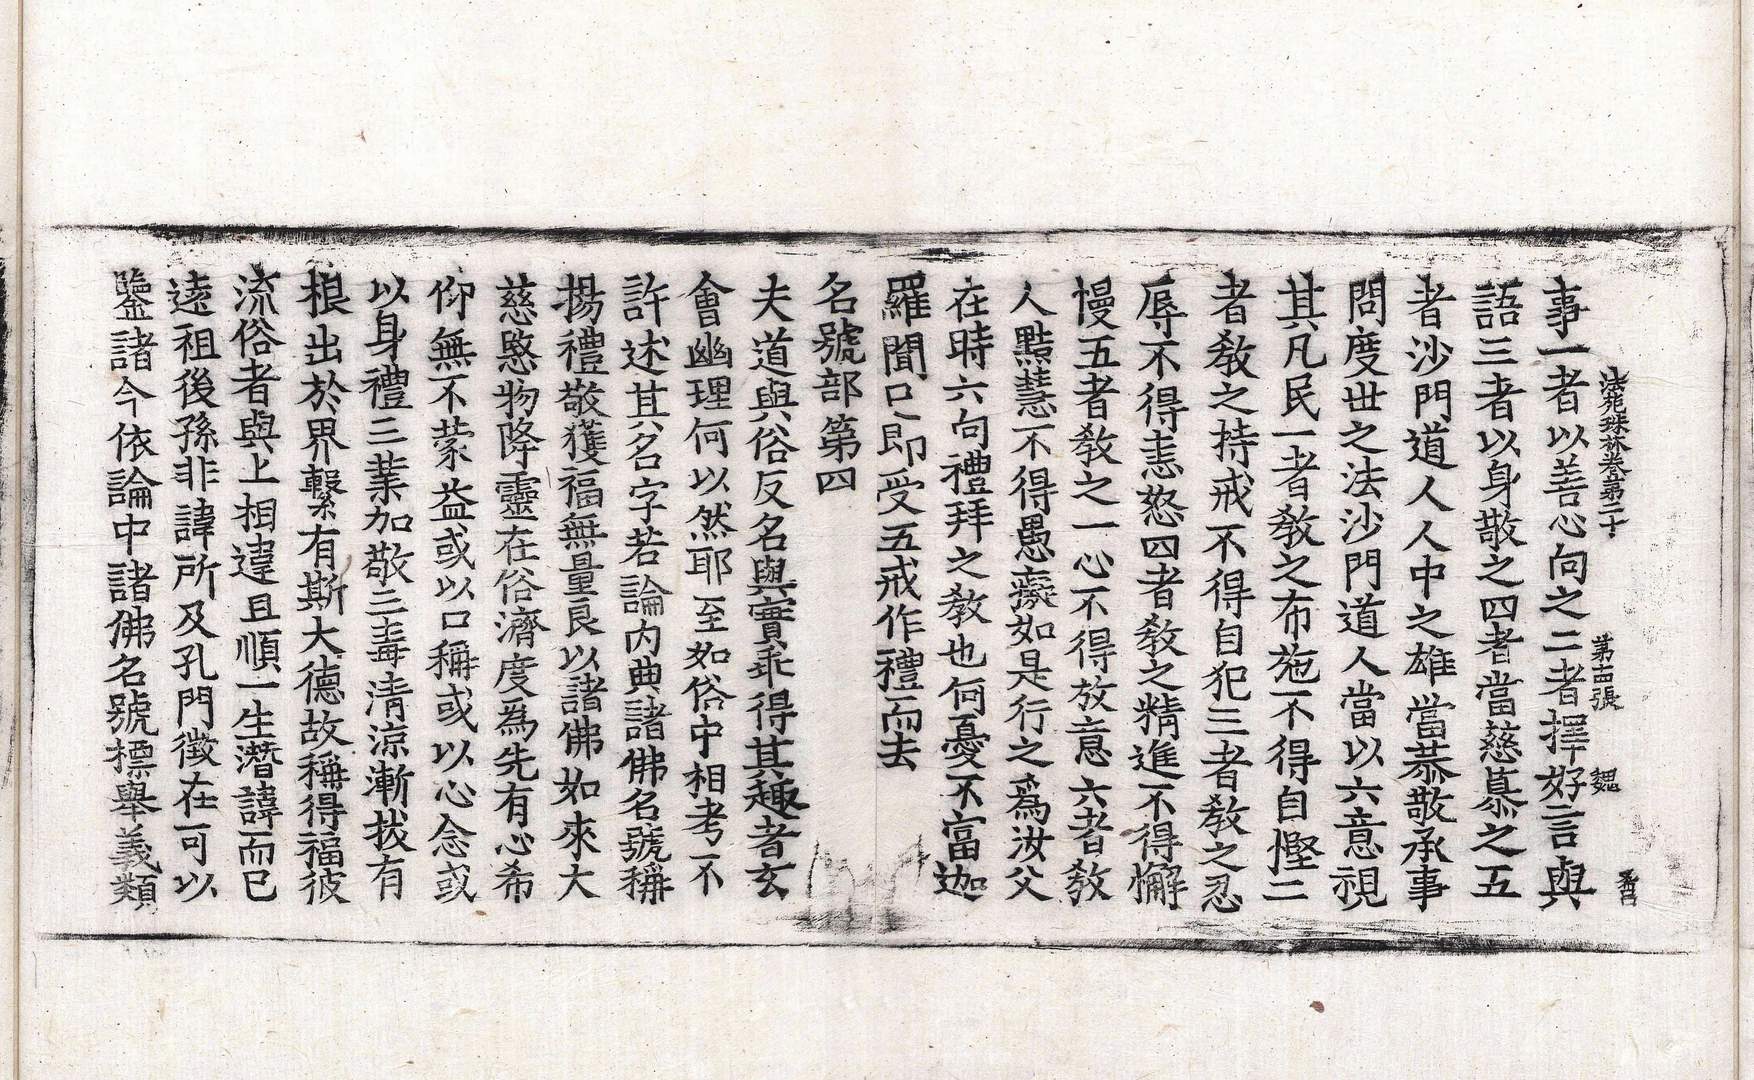 法苑珠林卷第二十 第十四張 魏
事一者以善心向之二者擇好言與
語三者以身敬之四者當慈慕之五
者沙門道人人中之雄當恭敬承事
問度世之法沙門道人當以六意視
其凡民一者敎之布施不得自慳二
者敎之持戒不得自犯三者敎之忍
辱不得恚怒四者敎之精進不得懈
慢五者敎之一心不得放意六者敎
人黠慧不得愚癡如是行之爲汝父
在時六向禮拜之敎也何憂不富迦
羅聞已即受五戒作禮而去
名號部第四
夫道與俗反名與實乖得其趣者玄
會幽理何以然耶至如俗中相考不
許述其名字若論内典諸佛名號稱
揚禮敬獲福無量良以諸佛如來大
慈愍物降靈在俗濟度為先有心希
仰無不蒙益或以口稱或以心念或
以身禮三業加敬三毒清涼漸拔有
根出於界繫有斯大德故稱得福彼
流俗者與上相違且順一生潛諱而已
遠祖後孫非諱所及孔門徵在可以
鑒諸今依論中諸佛名號標舉義類